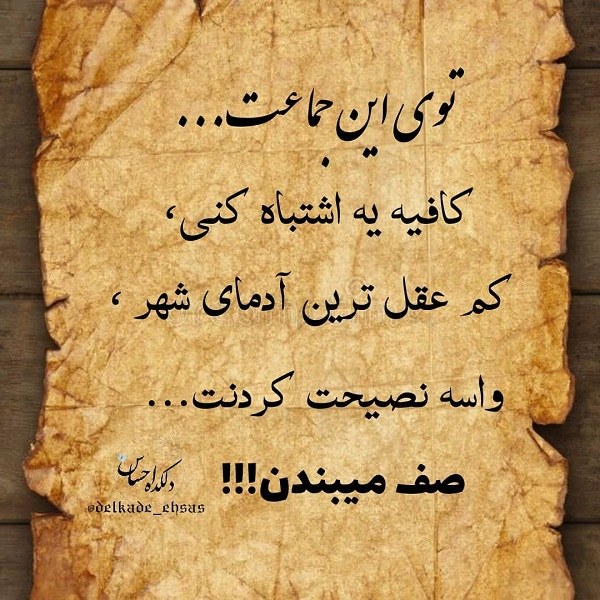 توی این جماعت...
کافیه یه اشتباه کنی،
کم عقل ترین آدمای شهر ،
واسه نصیحت کردنت...
صف میبندن!!!
دلکده احساس
@delkade_ehsas